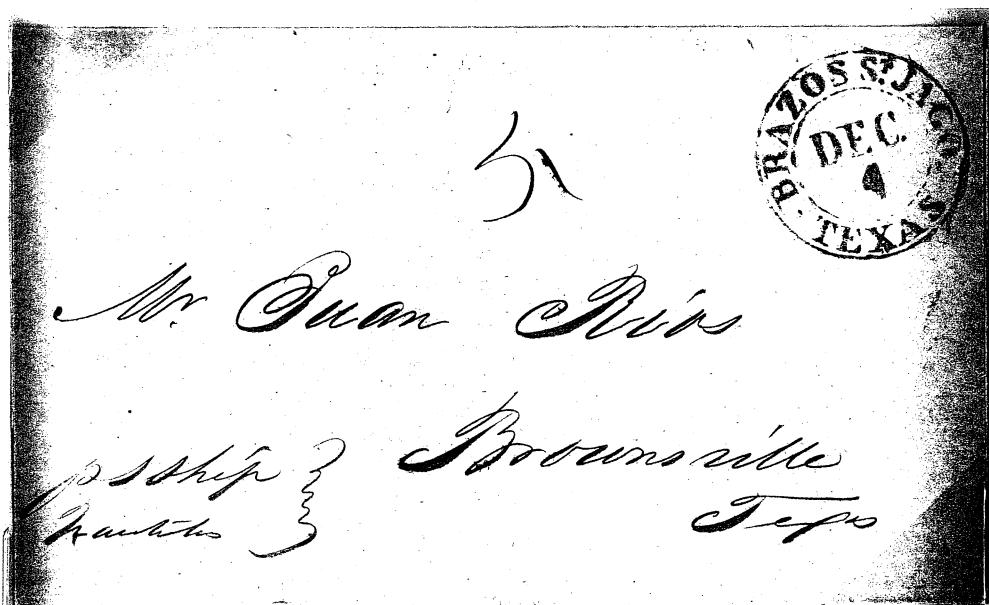 BRAZOS St. JAGO.
DEC.
4
TEXAS
5
Mr. Juan Rios
Brownsville
Texs
p S Ship
Nautilus